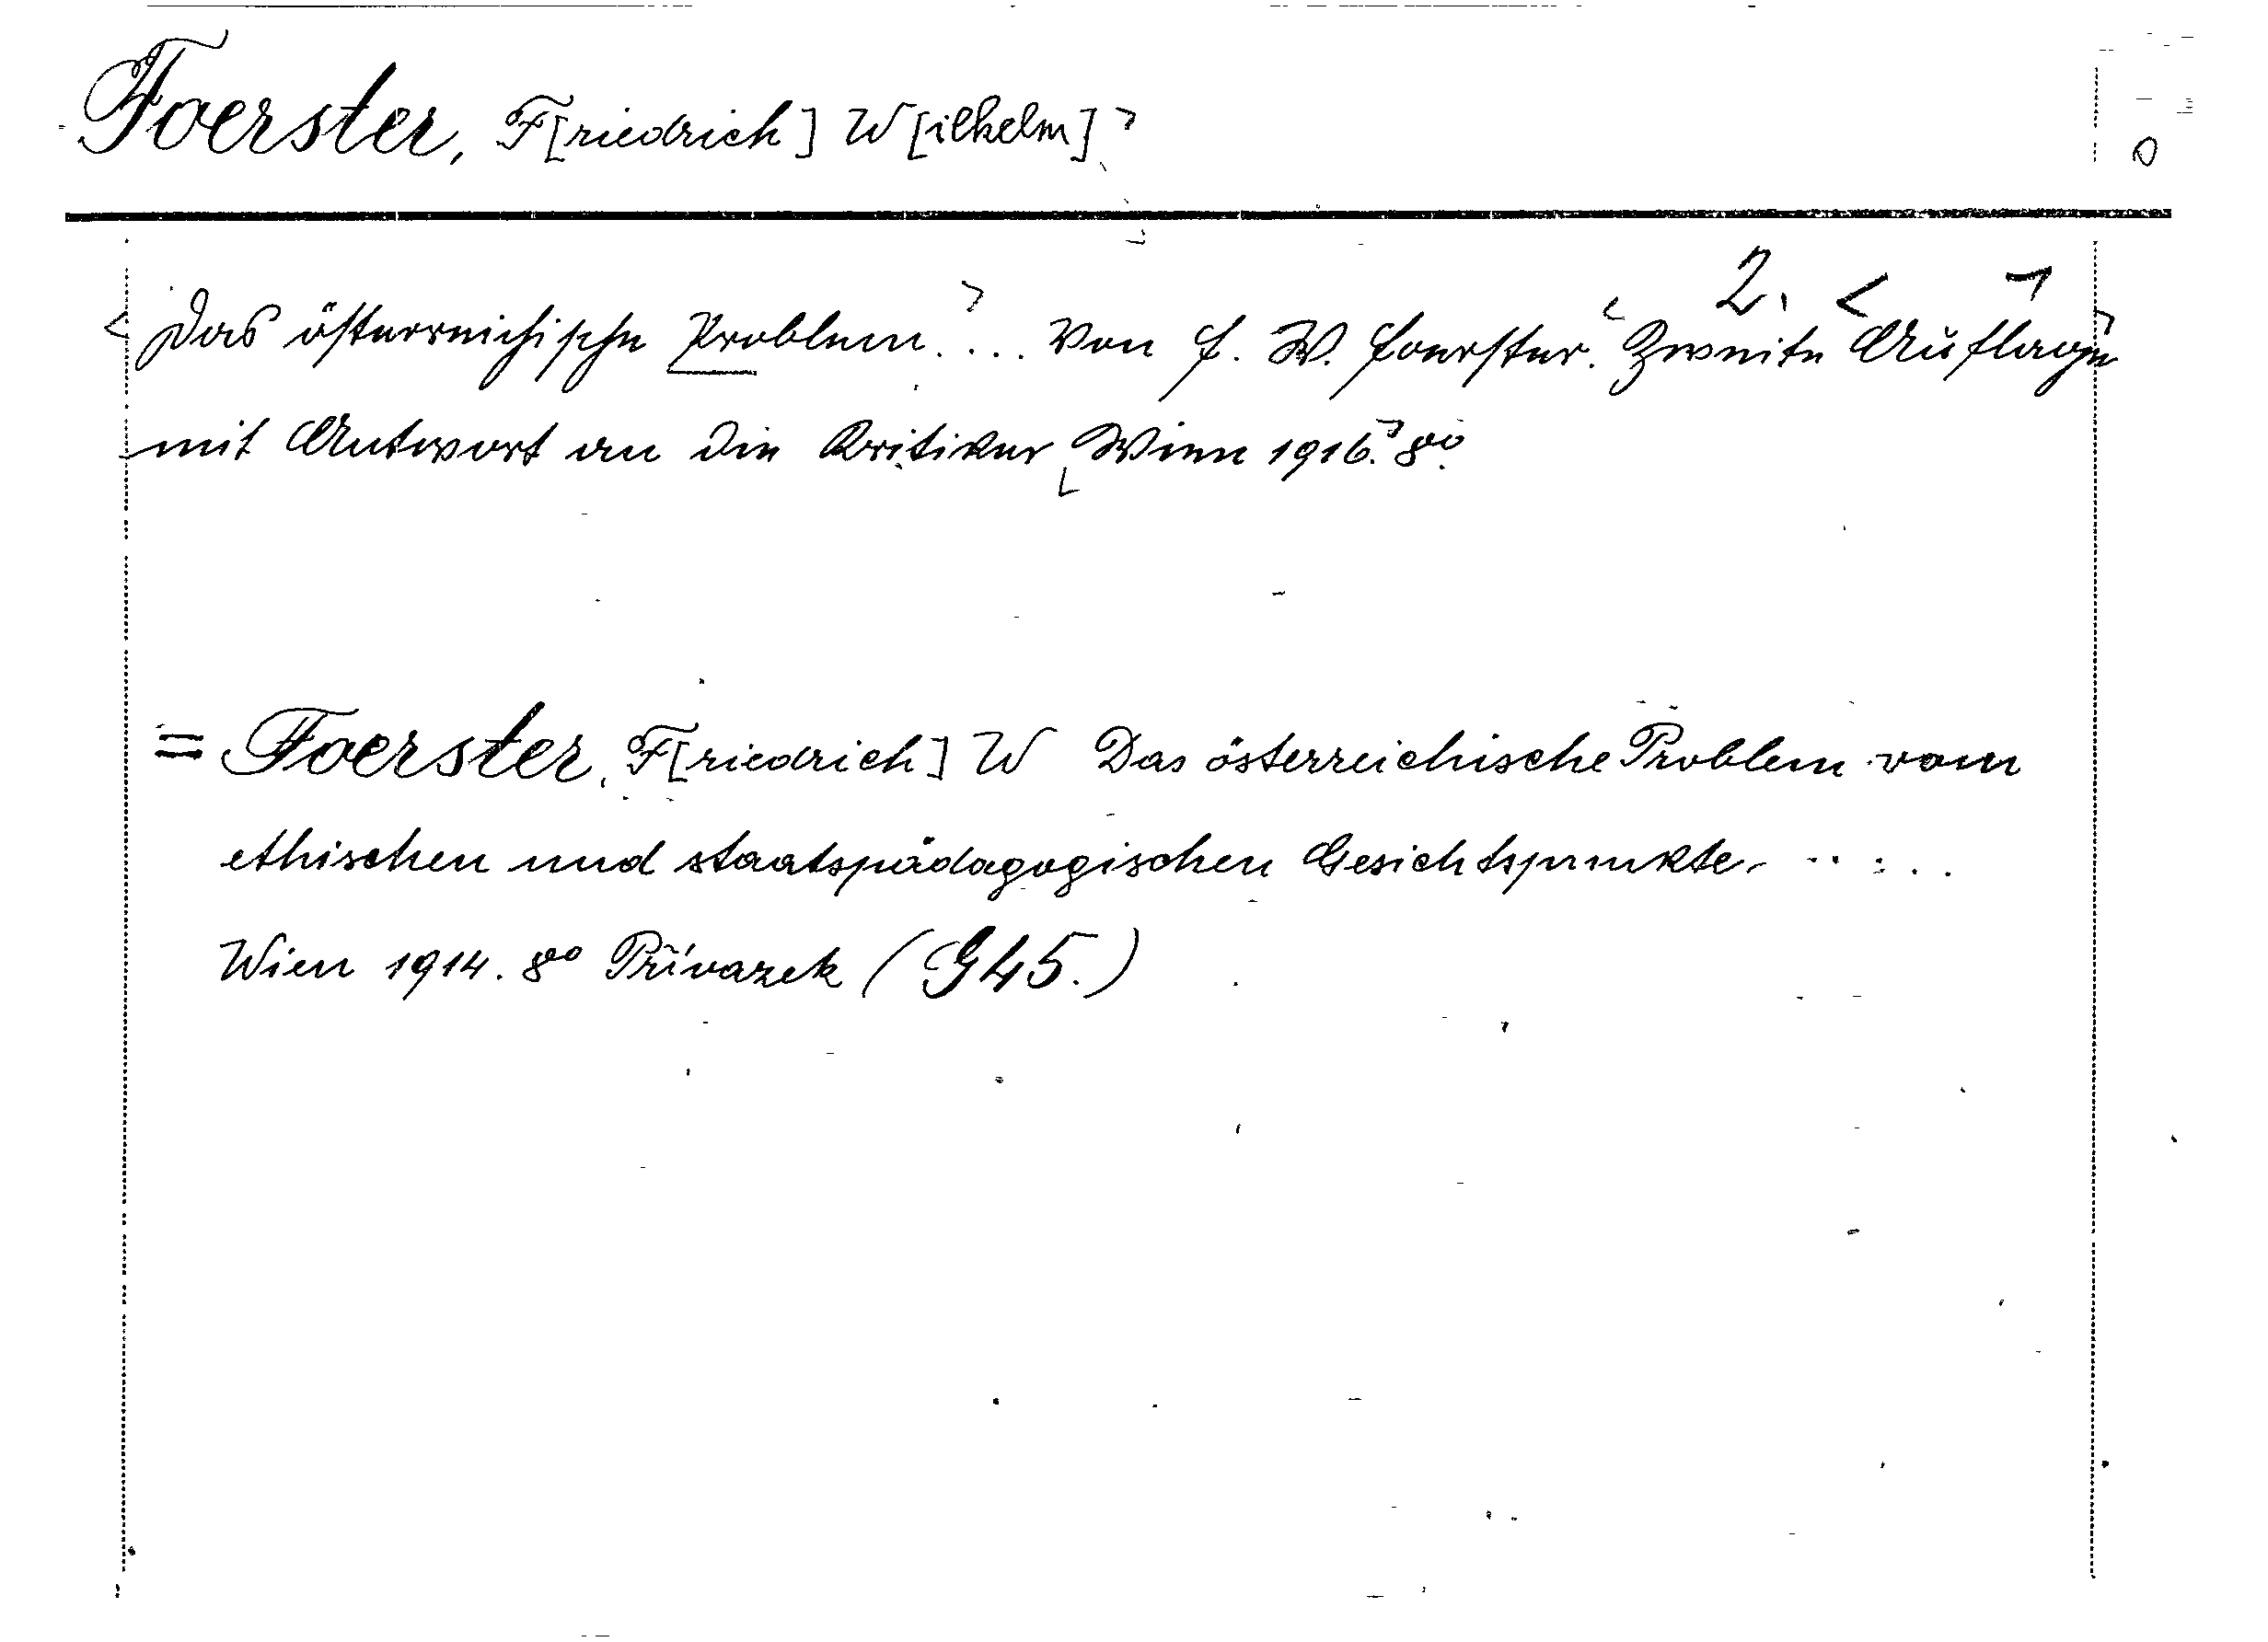 Foerster, F[riedrich] W[ilhelm]
Das österreichische Problem. ... Von F. W. Foerster. Zweite Auflage
2.
mit Antwort an die Kritiker Wien 1916. 8°.
= Foerster, F[riedrich] W Das österreichische Problem vom
ethischen und staatspädagogischen Gesichtspunkte. ....
Wien 1914. 8° Přívazek (G45.)